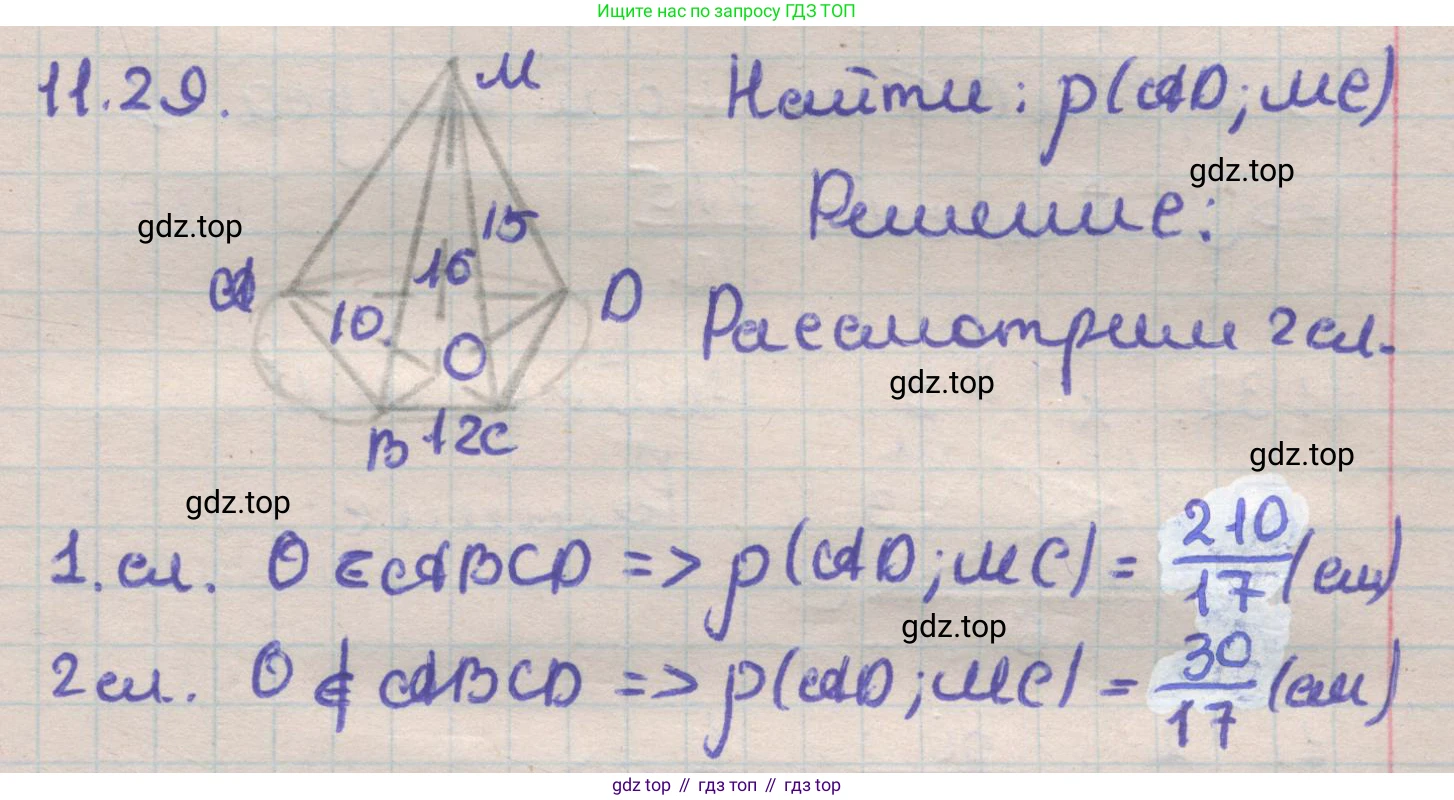 Ищите нас по запросу ГДЗ ТОП
11.29.
M
Найти: ρ(AD; MC)
gdz.top
Решение:
gdz.top
15
16
A
D
10
Рассмотрим 2 сл.
O
gdz.top
B 12 C
gdz.top
gdz.top
1. сл. O ∈ ABCD => ρ(AD; MC) = 210/17 (см)
gdz.top
2 сл. O ∉ ABCD => ρ(AD; MC) = 30/17 (см)
gdz top // гдз топ // гдз top